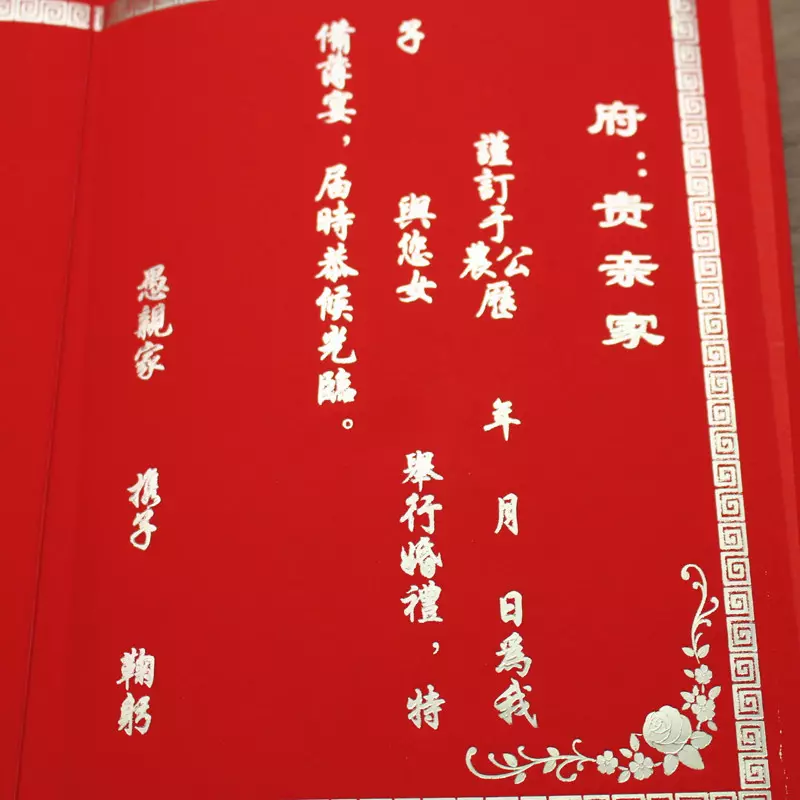 府：贵亲家
謹訂于公農歷 年 月 日爲我
子 與您女 舉行婚禮，特
備薄宴，届時恭候光臨。
愚親家 携子 鞠躬